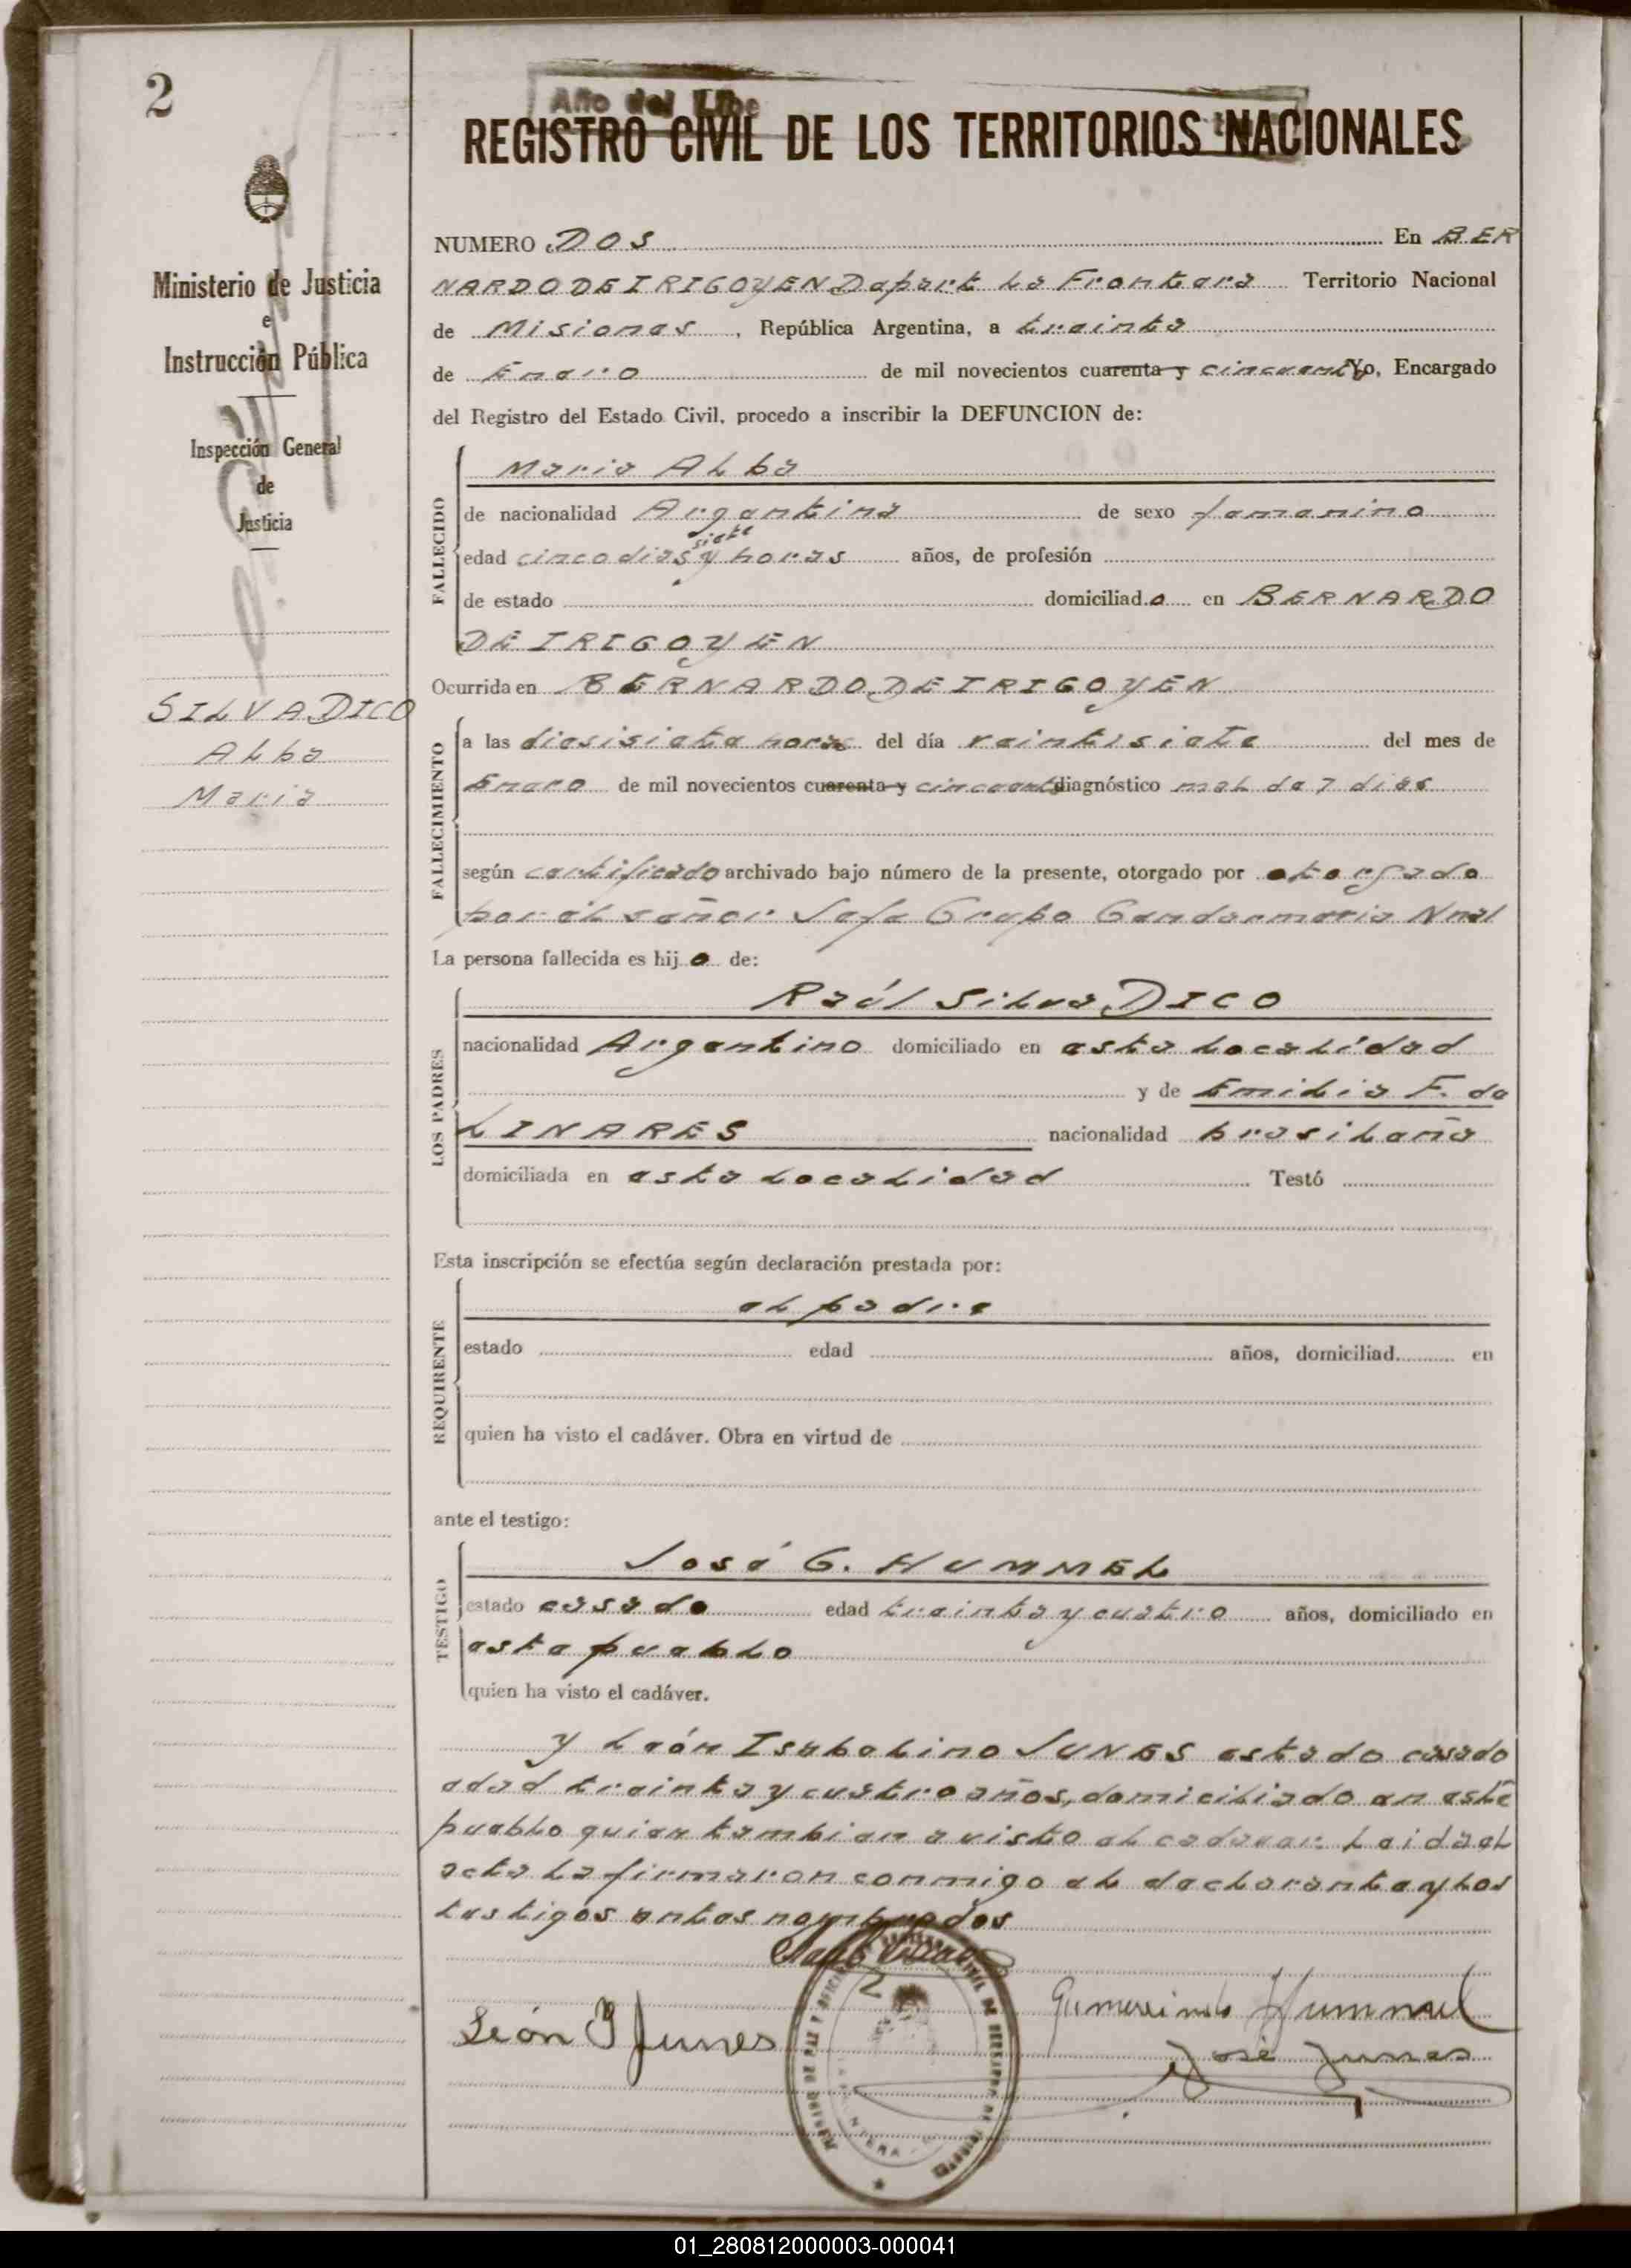 2
Año del Libe
REGISTRO CIVIL DE LOS TERRITORIOS NACIONALES
Ministerio de Justicia
e
Instrucción Pública
Inspección General
de
Justicia
SILVA DICO
Alba
Maria
NUMERO DOS En BER
NARDO DE IRIGOYEN Depart La Frontera Territorio Nacional
de Misiones, República Argentina, a treinta
de Enero de mil novecientos cuarenta y cincuenta Yo, Encargado
del Registro del Estado Civil, procedo a inscribir la DEFUNCION de:
FALLECIDO
Maria Alba
de nacionalidad Argentina de sexo femenino
siete
edad cinco dias y horas años, de profesión
de estado domiciliado en BERNARDO
DE IRIGOYEN
Ocurrida en BERNARDO DE IRIGOYEN
FALLECIMIENTO
a las diesisiete horas del día veintisiete del mes de
Enero de mil novecientos cuarenta y cincuenta diagnóstico mal de 7 dias
según certificado archivado bajo número de la presente, otorgado por otorgado
por el señor Jefe Grupo Gendarmeria Nnal
La persona fallecida es hijo de:
LOS PADRES
Raúl Silva DICO
nacionalidad Argentino domiciliado en esta localidad
y de Emilia F. de
LINARES nacionalidad brasileña
domiciliada en esta localidad Testó
Esta inscripción se efectúa según declaración prestada por:
REQUIRENTE
el padre
estado edad años, domiciliad en
quien ha visto el cadáver. Obra en virtud de
ante el testigo:
TESTIGO
José G. HUMMEL
estado casado edad treinta y cuatro años, domiciliado en
este pueblo
quien ha visto el cadáver.
y León Isabelino JUNES estado casado
edad treinta y cuatro años, domiciliado en este
pueblo quien tambien a visto el cadaver. Leida el
acta la firmaron conmigo el declarante y los
testigos antes nombrados
León I Junes
Gumercindo Hummel
José Junes
01_280812000003-000041